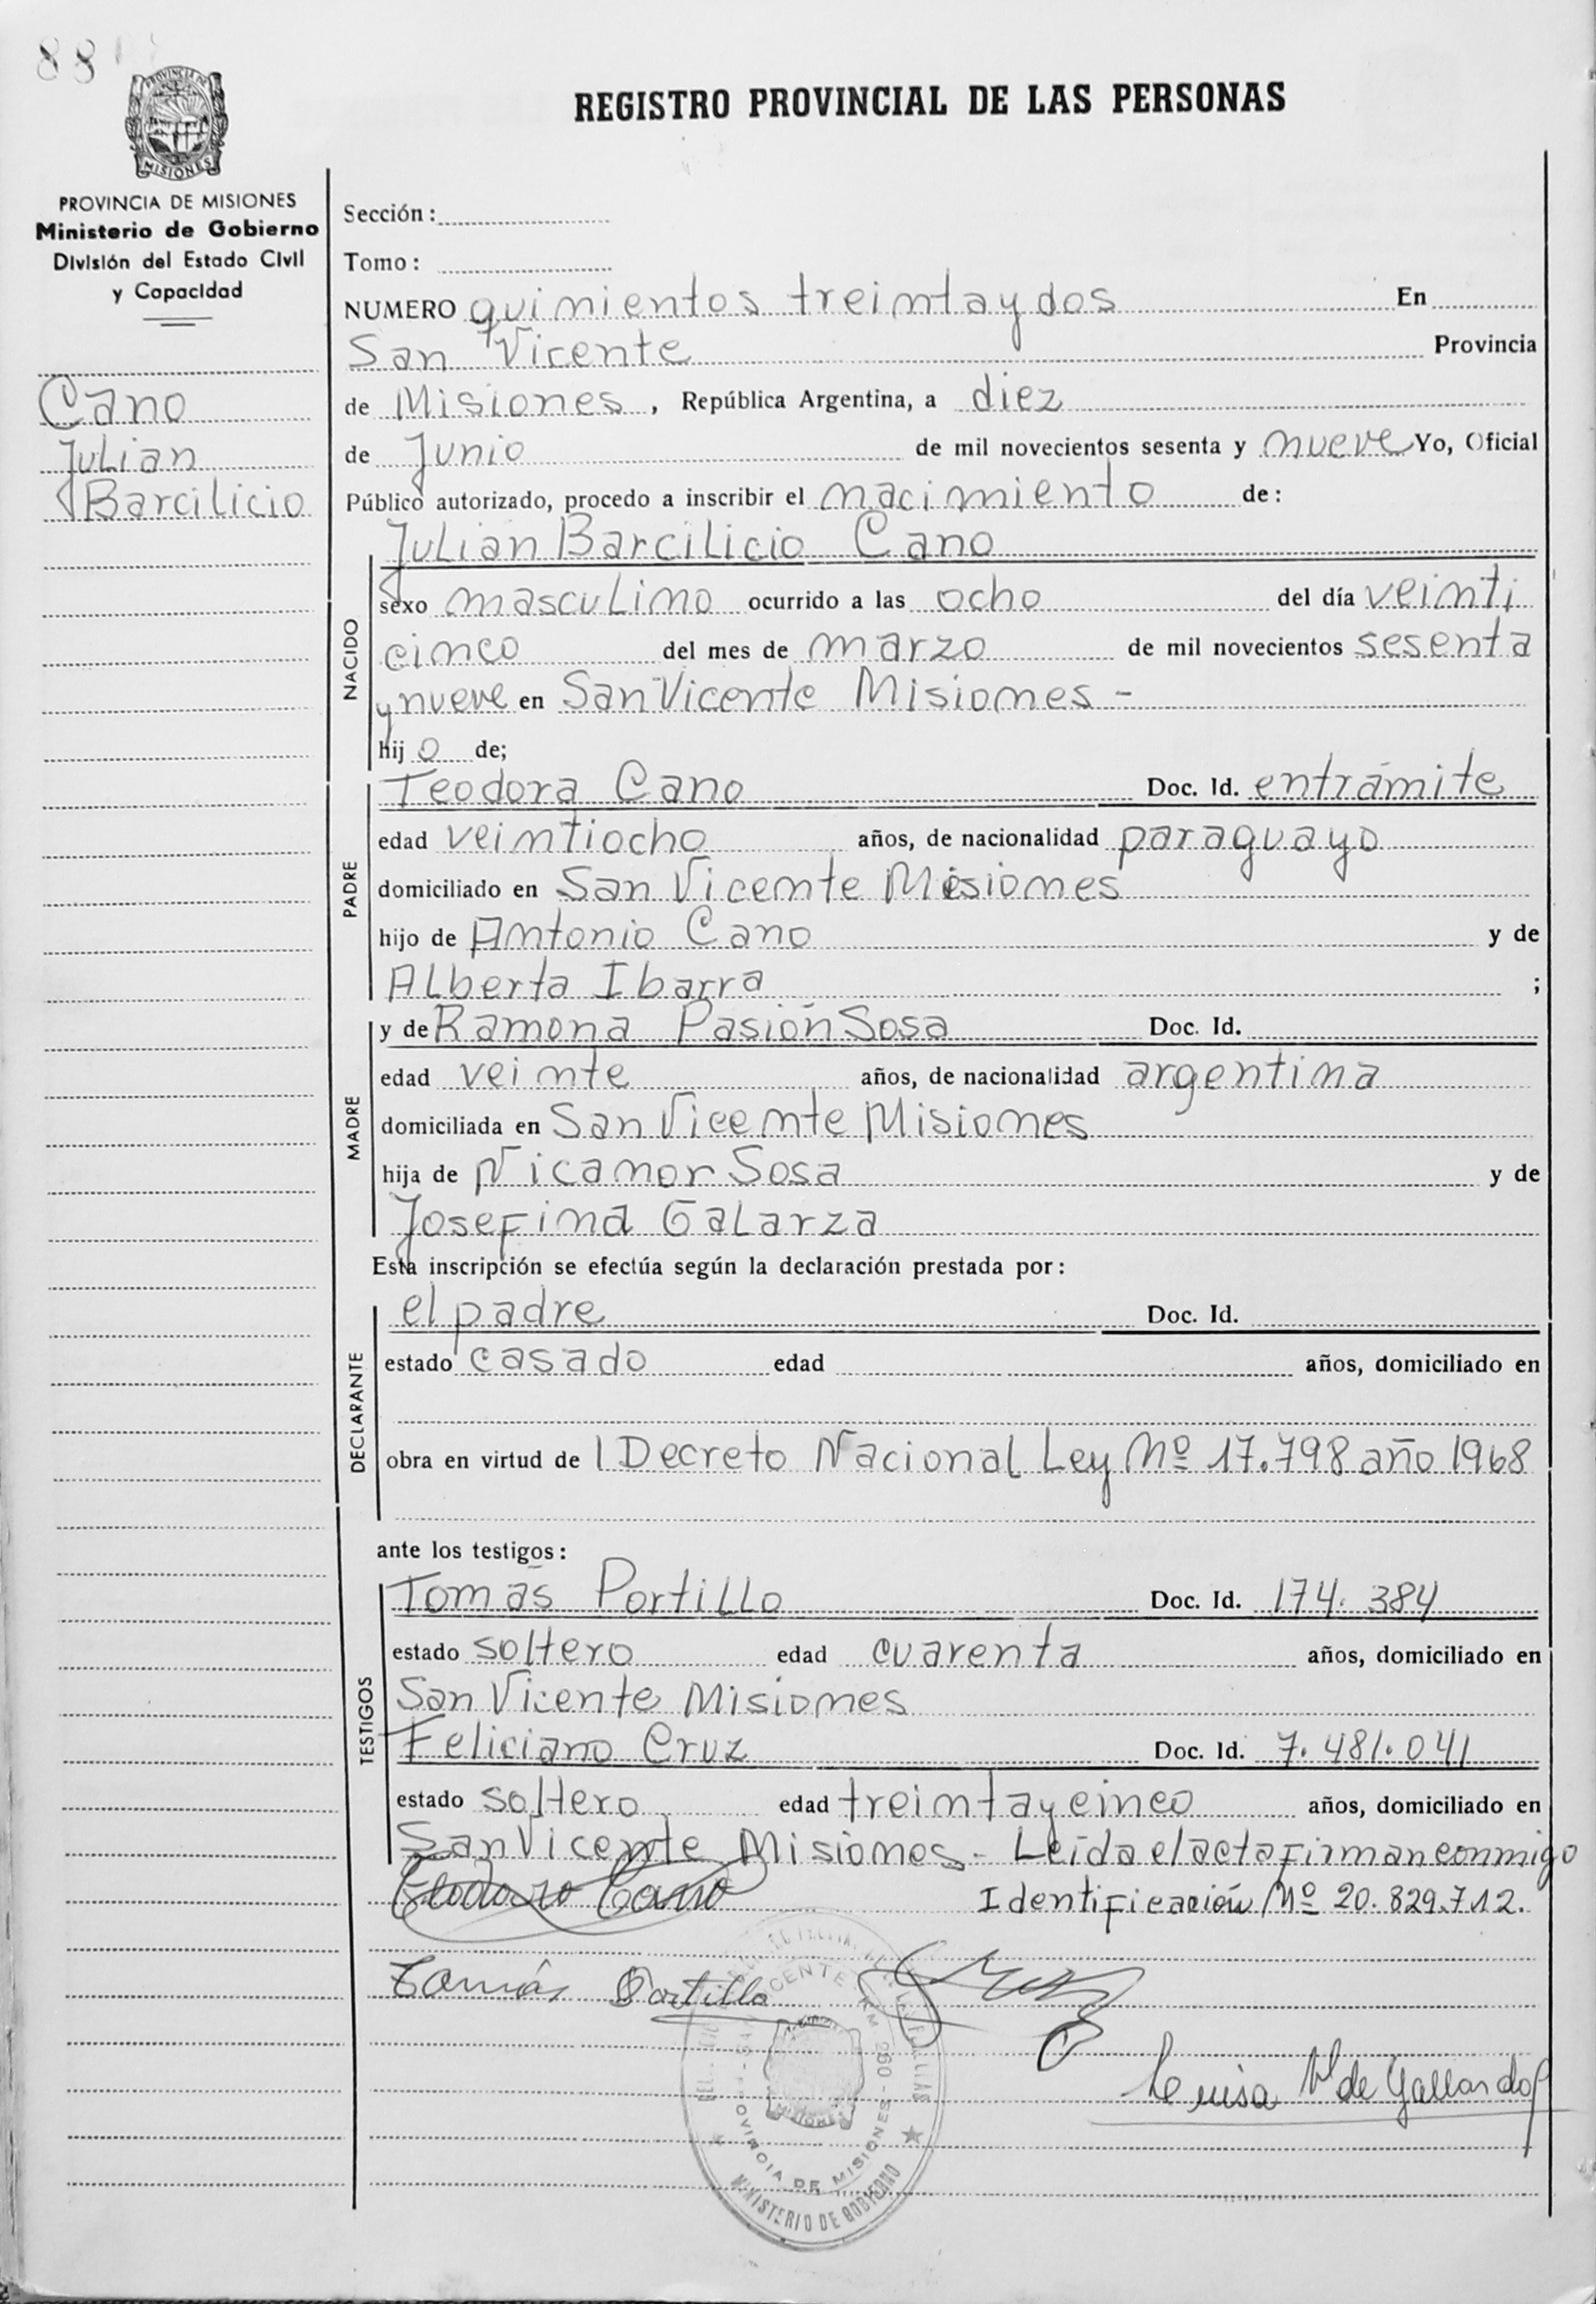 88
PROVINCIA DE
MISIONES
REGISTRO PROVINCIAL DE LAS PERSONAS
PROVINCIA DE MISIONES
Ministerio de Gobierno
División del Estado Civil
y Capacidad
Cano
Julian
Barcilicio
Sección:
Tomo:
NUMERO quinientos treintaydos En
San Vicente Provincia
de Misiones, República Argentina, a diez
de Junio de mil novecientos sesenta y nueve Yo, Oficial
Público autorizado, procedo a inscribir el nacimiento de:
Julian Barcilicio Cano
NACIDO
sexo masculino ocurrido a las ocho del día veinti
cinco del mes de marzo de mil novecientos sesenta
y nueve en San Vicente Misiones -
hij o de;
PADRE
Teodora Cano Doc. Id. entrámite
edad veintiocho años, de nacionalidad paraguayo
domiciliado en San Vicente Misiones
hijo de Antonio Cano y de
Alberta Ibarra ;
MADRE
y de Ramona Pasión Sosa Doc. Id.
edad veinte años, de nacionalidad argentina
domiciliada en San Vicente Misiones
hija de Nicanor Sosa y de
Josefina Galarza
Esta inscripción se efectúa según la declaración prestada por:
DECLARANTE
el padre Doc. Id.
estado casado edad años, domiciliado en
obra en virtud de l Decreto Nacional Ley Nº 17.798 año 1968
ante los testigos:
TESTIGOS
Tomás Portillo Doc. Id. 174.384
estado soltero edad cuarenta años, domiciliado en
San Vicente Misiones
Feliciano Cruz Doc. Id. 7.481.041
estado soltero edad treintaycinco años, domiciliado en
San Vicente Misiones - Leída el acta firman conmigo
Identificación Nº 20.829.712.
Cano
Tomás Portillo
Luisa de Gallardo
VICENTE KM 260
PROVINCIA DE MISIONES
MINISTERIO DE GOBIERNO